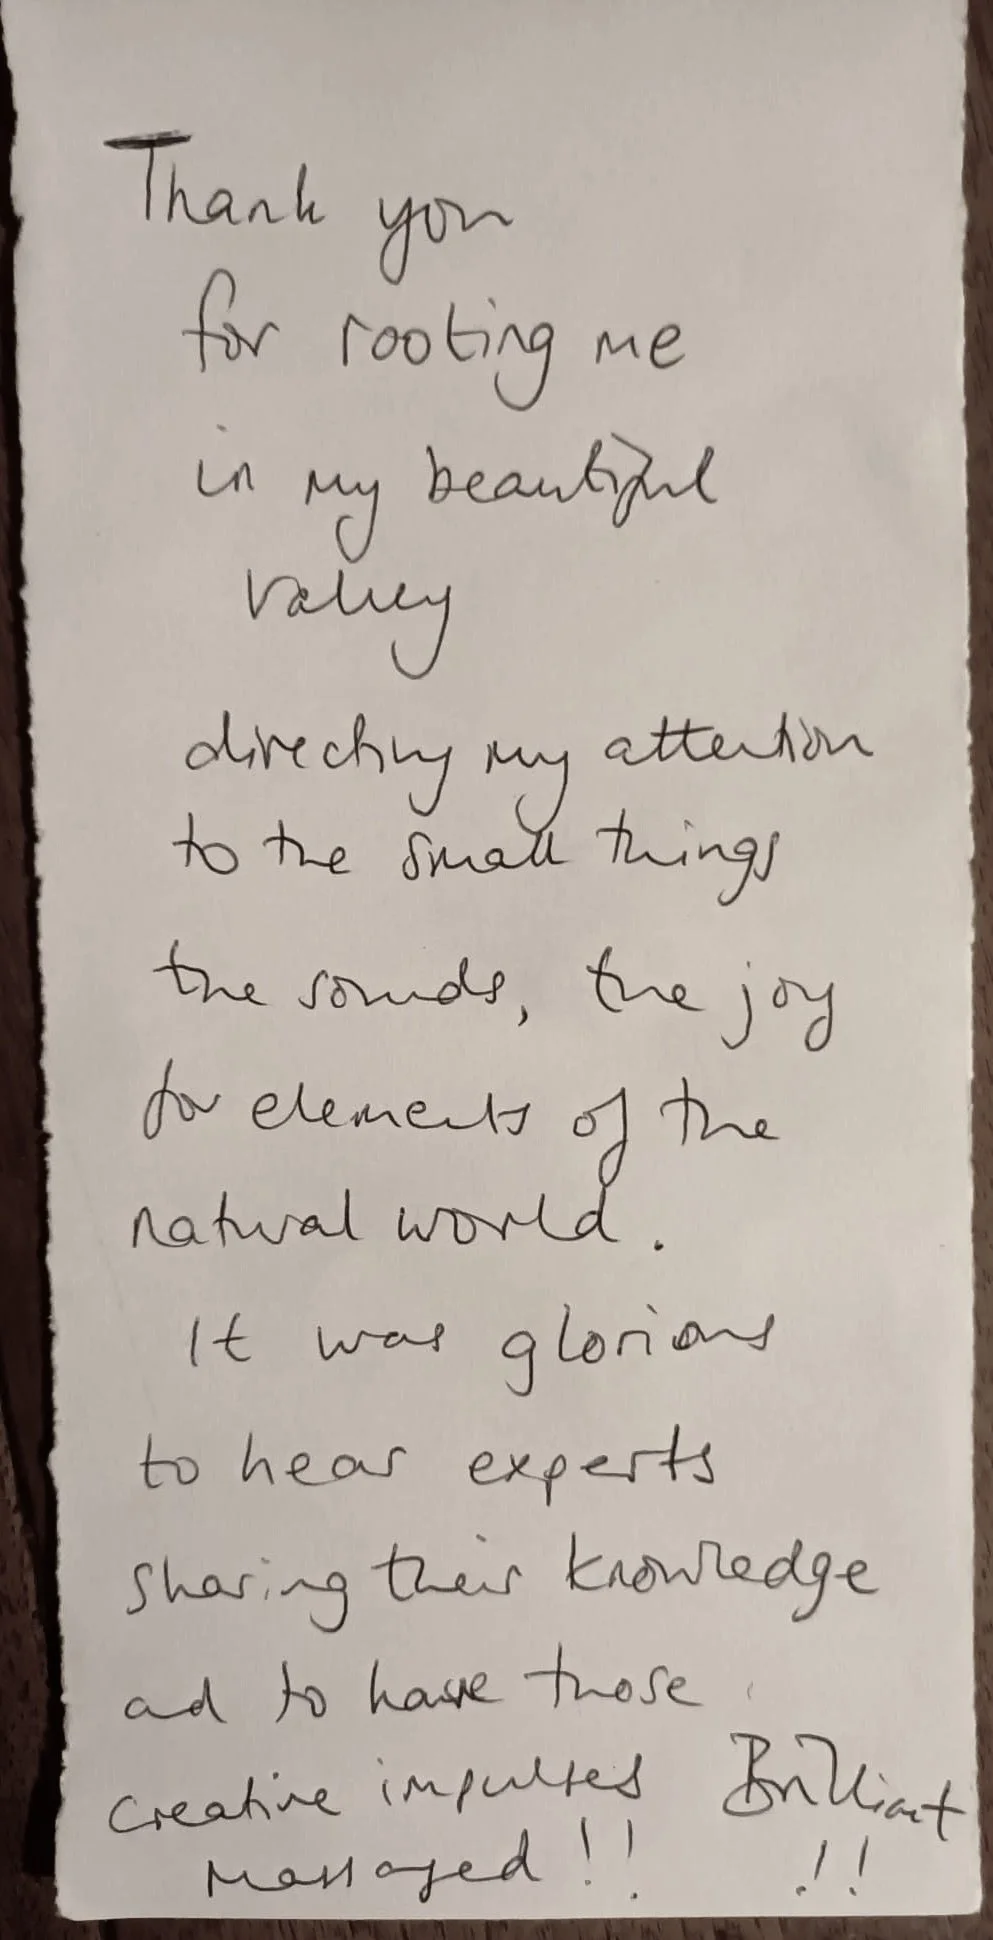 Thank you
for rooting me
in my beautiful
valley
directing my attention
to the small things
the sounds, the joy
for elements of the
natural world.
It was glorious
to hear experts
sharing their knowledge
and to have those
creative impulses
massaged !! Brilliant
!!